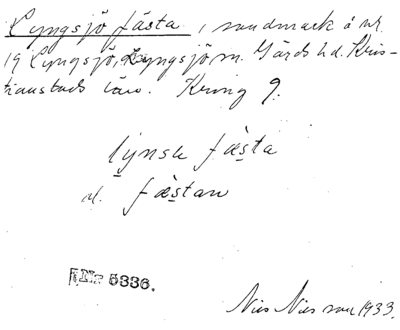 Lyngsjö fästa, sandmark å nr.
19 Lyngsjö, Lyngsjö sn. Gärds hd. Kris-
tianstads län. Kring 9.
lynsa fæsta
el. fæstan
Nr 5336.
Nils Nilsson 1933.